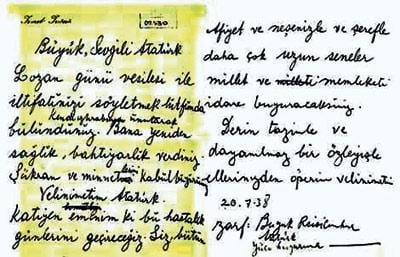 07.30
Büyük, Sevgili Atatürk
Lozan günü vesilesi ile
iltifatınızı söyletmek lütfunda
bulundunuz. Bana yeniden
sağlık, bahtiyarlık verdiniz
Şükran ve minnetlerimi kabul buyurunuz
Velinimetim Atatürk
Katiyen eminim ki bu hastalık
günlerini geçireceğiz. Siz, bütün
Afiyet ve neşenizle ve şerefle
daha çok uzun seneler
millet ve memleketi
idare buyuracaksınız.
Derin tazimle ve
dayanılmaz bir özleyişle
ellerinizden öperim velinimetim
20.7.38
zarf: Büyük Reisicumhur
Atatürk
Yüce